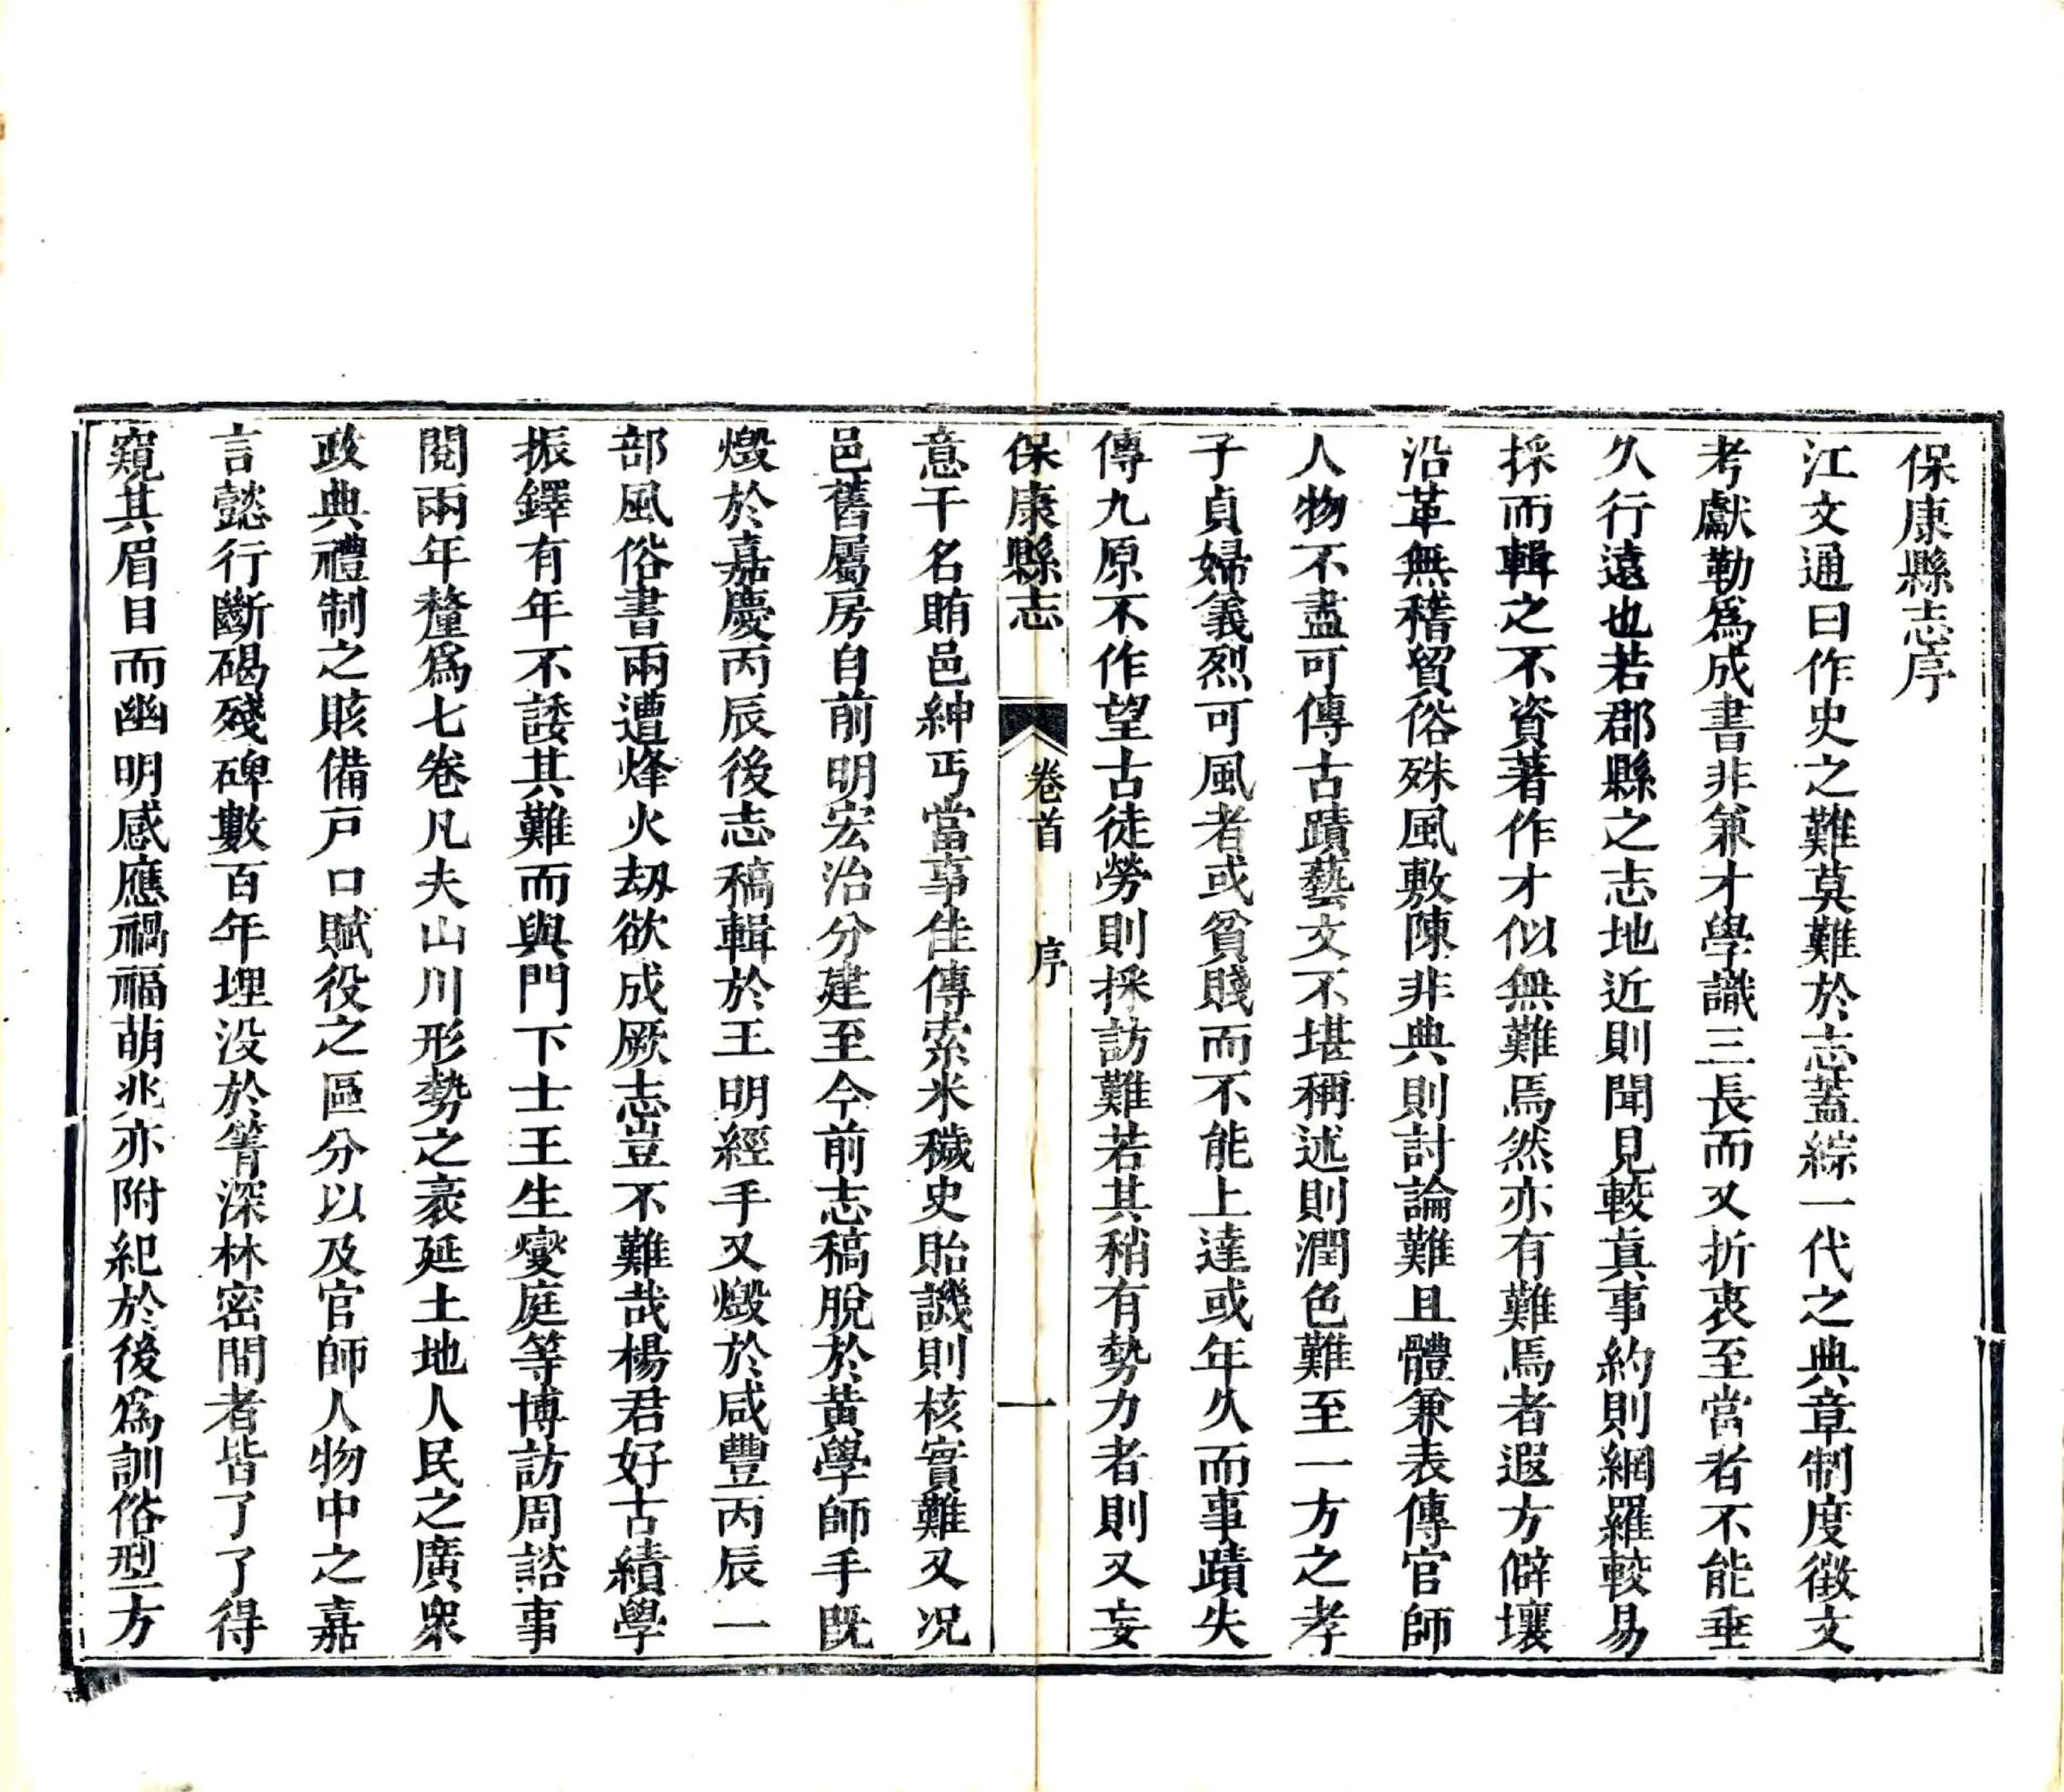 保康縣志序
江文通曰作史之難莫難於志蓋綜一代之典章制度徵文
考獻勒爲成書非兼才學識三長而又折衷至當者不能垂
久行遠也若郡縣之志地近則聞見較真事約則網羅較易
採而輯之不資著作才似無難焉然亦有難焉者遐方僻壤
沿革無稽貿俗殊風敷陳非典則討論難且體兼表傳官師
人物不盡可傳古蹟藝文不堪稱述則潤色難至一方之孝
子貞婦義烈可風者或貧賤而不能上達或年久而事蹟失
傳九原不作望古徒勞則採訪難若其稍有勢力者則又妄
保康縣志 卷首 序 一
意干名賄邑紳丐當事佳傳索米穢史貽譏則核實難又况
邑舊屬房自前明宏治分建至今前志稿脫於黃學師手既
燬於嘉慶丙辰後志稿輯於王明經手又燬於咸豐丙辰一
部風俗書兩遭烽火刼欲成厥志豈不難哉楊君好古績學
振鐸有年不諉其難而與門下士王生燮庭等博訪周諮事
閱兩年釐爲七卷凡夫山川形勢之袤延土地人民之廣衆
政典禮制之賅備戸口賦役之區分以及官師人物中之嘉
言懿行斷碣殘碑數百年埋没於箐深林密間者皆了了得
窺其眉目而幽明感應禍福萌兆亦附紀於後爲訓俗型方